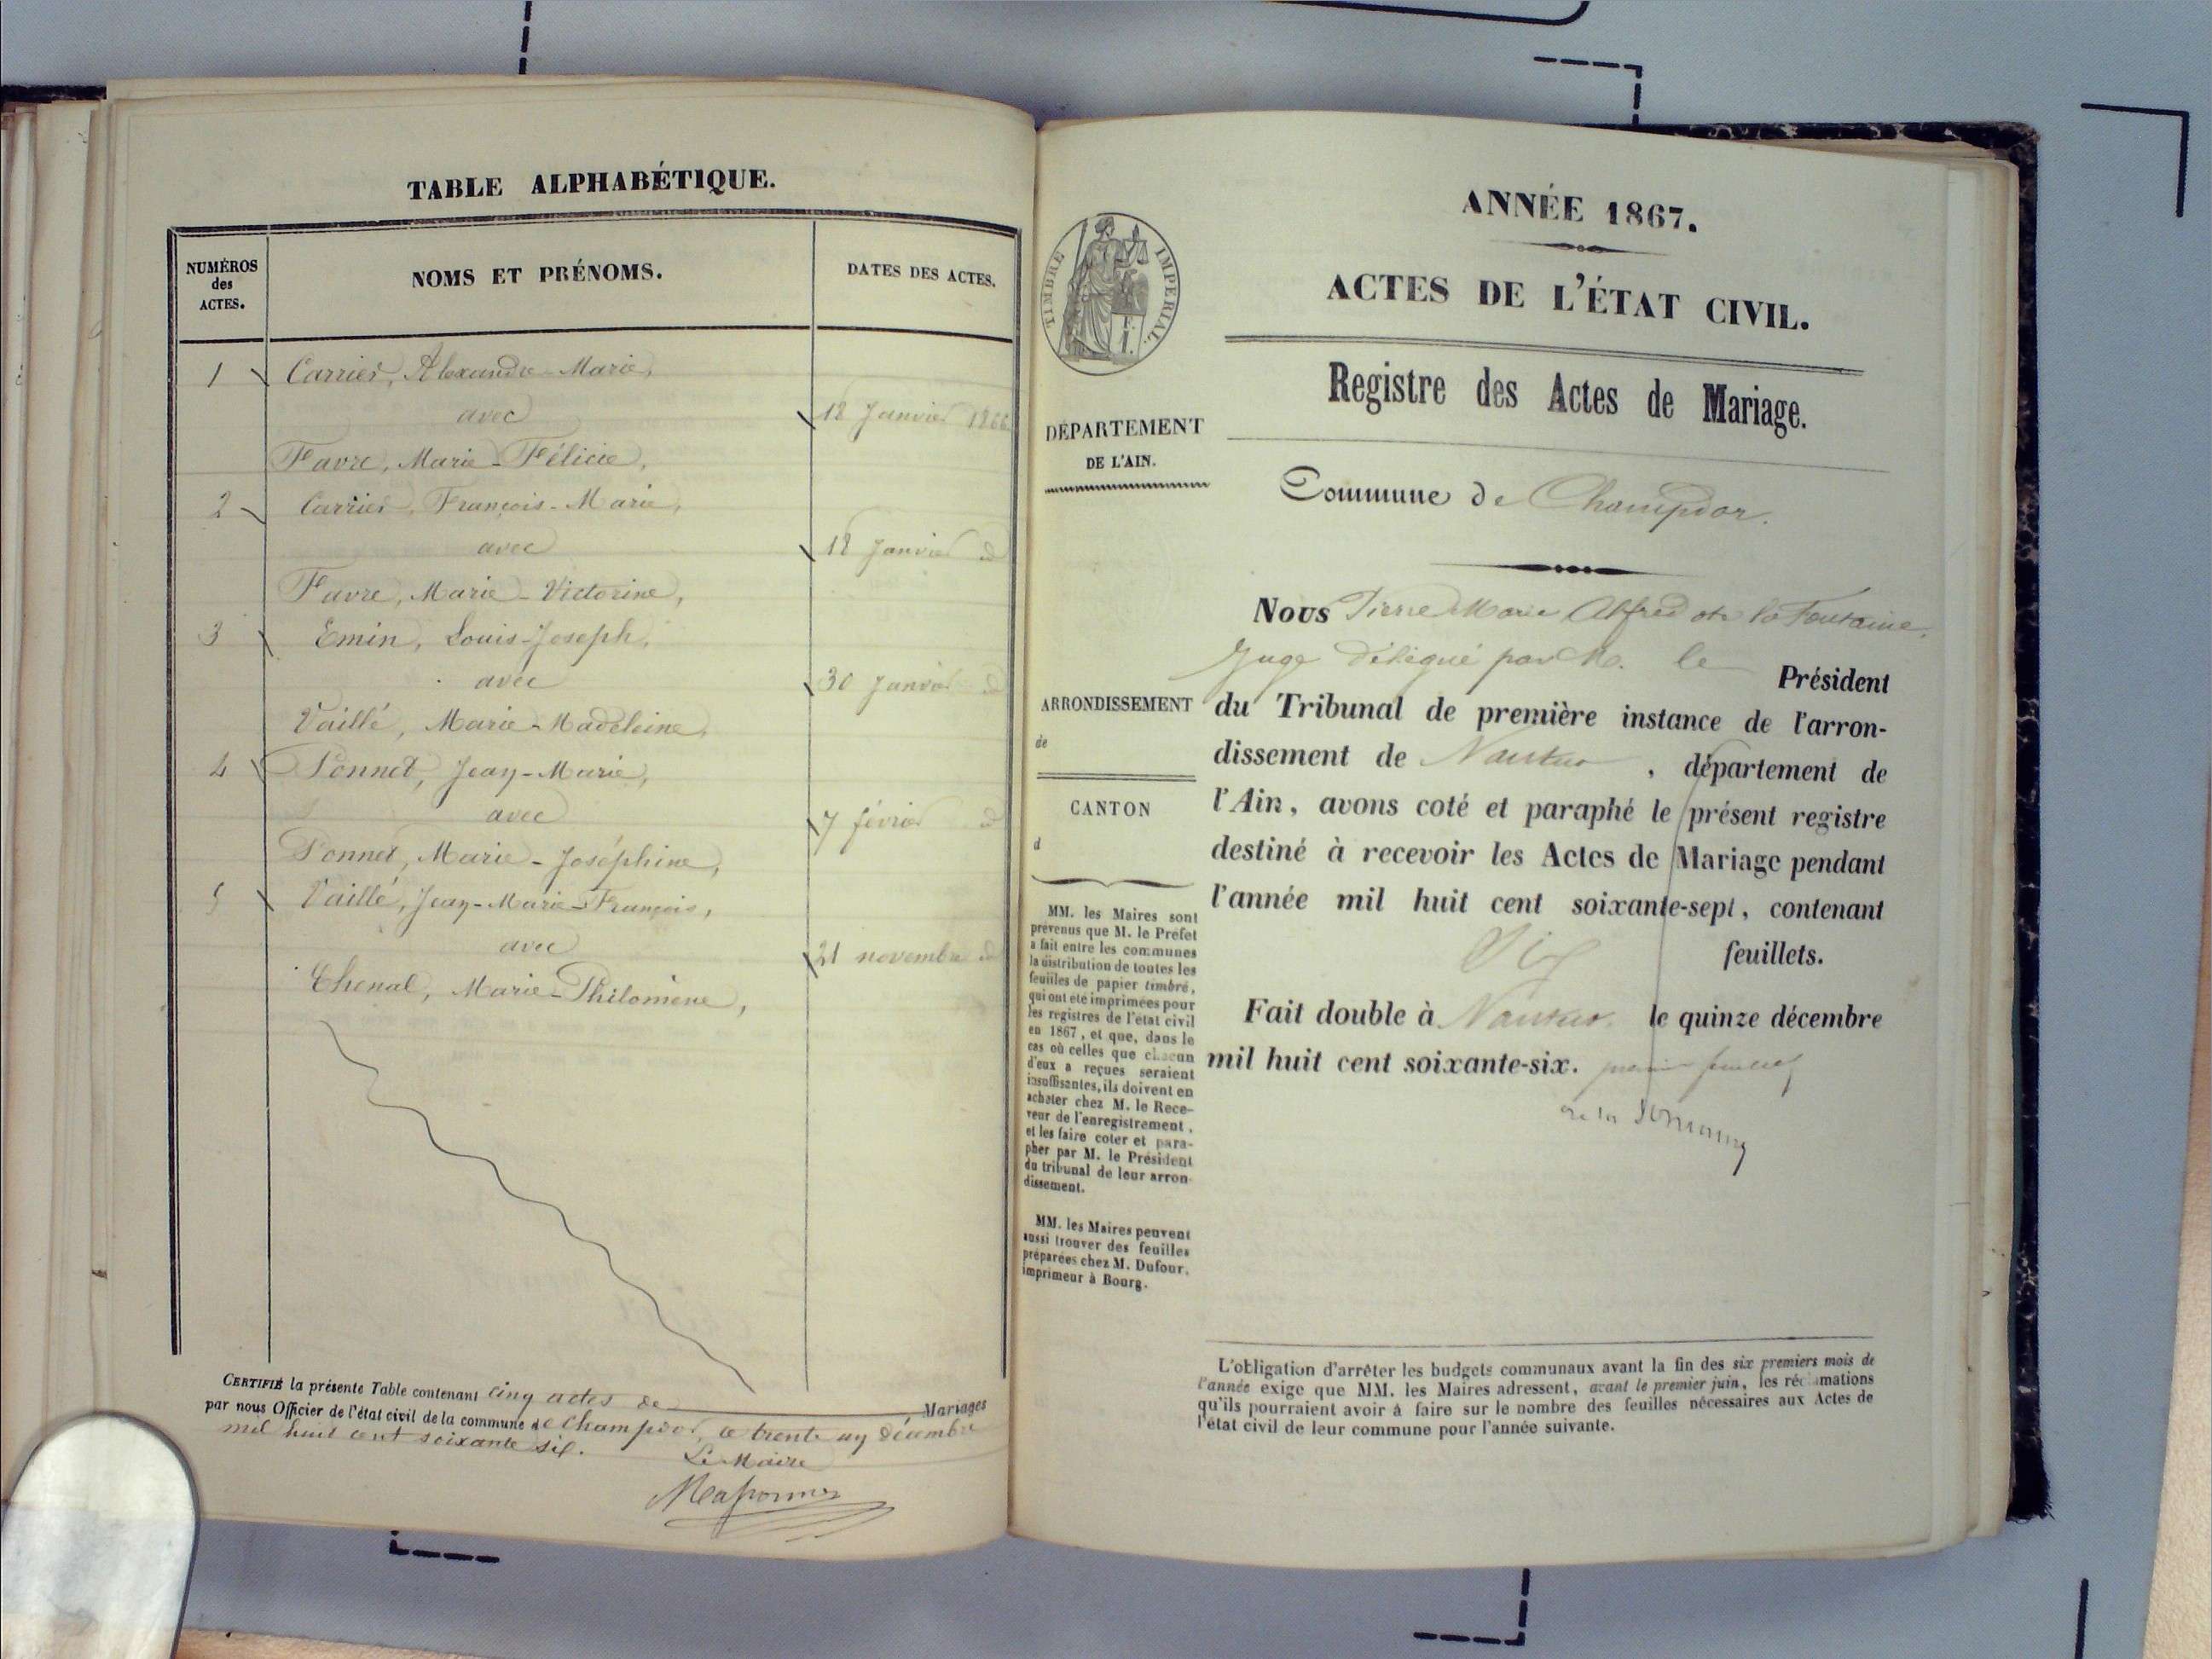 TABLE ALPHABÉTIQUE.
NUMÉROS
des
ACTES.
NOMS ET PRÉNOMS.
DATES DES ACTES.
1 Carrier, Alexandre-Marie,
avec
18 Janvier 1866
Favre, Marie-Félicie,
2 Carrier, François-Marie,
avec
18 Janvier d
Favre, Marie-Victorine,
3 Emin, Louis-Joseph,
avec
30 Janvier d
Vaillé, Marie-Madeleine,
4 Ponnet, Jean-Marie,
avec
7 février d
Ponnet, Marie-Joséphine,
5 Vaillé, Jean-Marie-François,
avec
21 novembre d
Chenal, Marie-Philomène,
CERTIFIÉ la présente Table contenant cinq actes de Mariages
par nous Officier de l'état civil de la commune de Champdor, ce trente un décembre
mil huit cent soixante six.
Le Maire
TIMBRE IMPÉRIAL.
DÉPARTEMENT
DE L'AIN.
ARRONDISSEMENT
de
CANTON
d
MM. les Maires sont
prévenus que M. le Préfet
a fait entre les communes
la distribution de toutes les
feuilles de papier timbré,
qui ont été imprimées pour
les registres de l'état civil
en 1867, et que, dans le
cas où celles que chacun
d'eux a reçues seraient
insuffisantes, ils doivent en
acheter chez M. le Rece-
veur de l'enregistrement,
et les faire coter et para-
pher par M. le Président
du tribunal de leur arron-
dissement.
MM. les Maires peuvent
aussi trouver des feuilles
préparées chez M. Dufour,
imprimeur à Bourg.
ANNÉE 1867.
ACTES DE L'ÉTAT CIVIL.
Registre des Actes de Mariage.
Commune de Champdor.
Nous Pierre Marie Alfred de la Fontaine,
Juge délégué par M. le Président
du Tribunal de première instance de l'arron-
dissement de Nantua, département de
l'Ain, avons coté et paraphé le présent registre
destiné à recevoir les Actes de Mariage pendant
l'année mil huit cent soixante-sept, contenant
Six feuillets.
Fait double à Nantua le quinze décembre
mil huit cent soixante-six. premier feuillet
L'obligation d'arrêter les budgets communaux avant la fin des six premiers mois de
l'année exige que MM. les Maires adressent, avant le premier juin, les réclamations
qu'ils pourraient avoir à faire sur le nombre des feuilles nécessaires aux Actes de
l'état civil de leur commune pour l'année suivante.